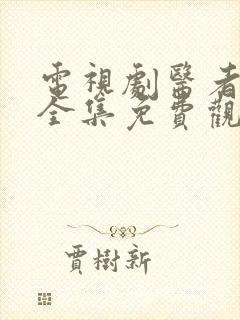 電視劇醫者
全集免費觀
賈樹新